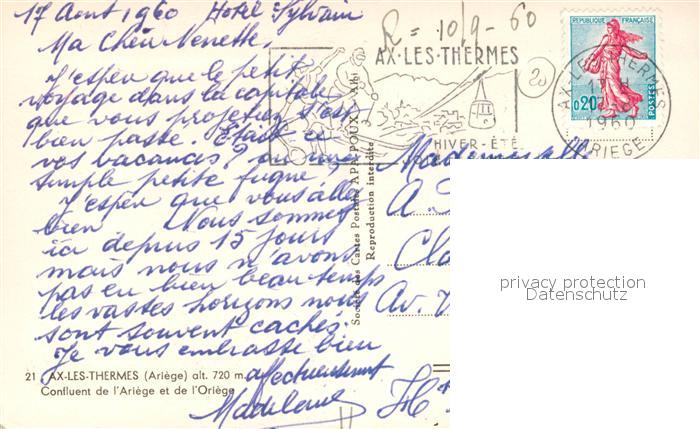 17 Aout 1960 Hotel Sylvain
Ma Chère Nenette,
J'espère que le petit
voyage dans la capitale
que vous projetiez s'est
bien passé. Etait ce
vos vacances? ou une
simple petite fugue,
J'espère que vous allez
bien Nous sommes
ici depuis 15 jours
mais nous n'avons
pas eu bien beau temps
les vastes horizons nous
sont souvent cachés.
Je vous embrasse bien
affectueusement
Madeleine
R = 10/9 - 60
20
AX-LES-THERMES
HIVER-ÉTÉ
REPUBLIQUE FRANÇAISE
0,20
POSTES
AX-LES-THERMES
17 H
1960
ARIEGE
Société des Cartes Postales APA-POUX - Albi
Reproduction interdite
Mademoiselle
A.
Cla
Av. V
21 . AX-LES-THERMES (Ariège) alt. 720 m.
Confluent de l'Ariège et de l'Oriège
privacy protection
Datenschutz